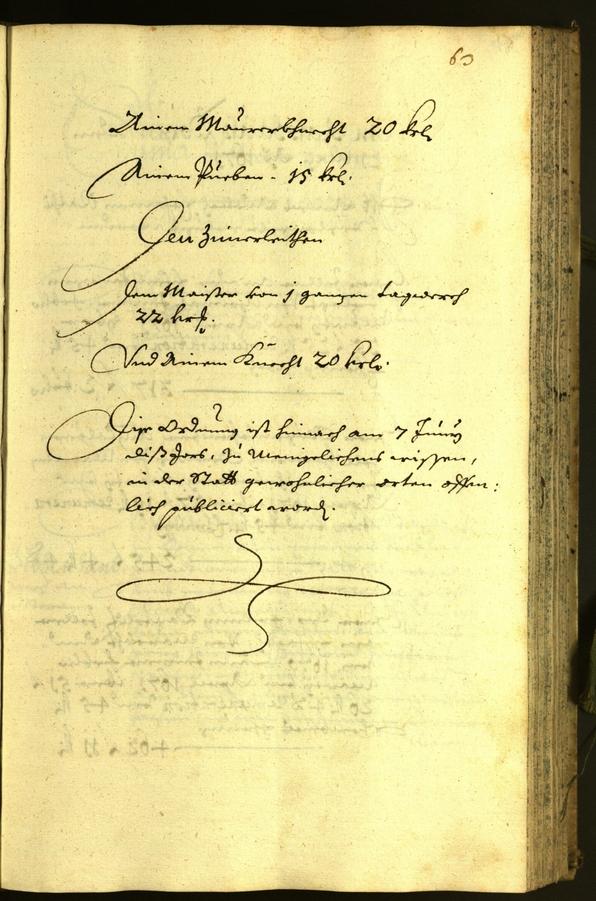 63
Ainem Maurerkhnecht 20 krl.
Ainem Pueben - 15 krl.
Den Zimerleithen
Dem Maister von j ganzen tagwerch
22 krl.
Vnd Ainem Knecht 20 krl.
Dise Ordnung ist hinnach am 7 Junij
diß Jars, zu Meniglichens wissen,
in der Statt gewohnlicher orten offen:
lich publiciert word.